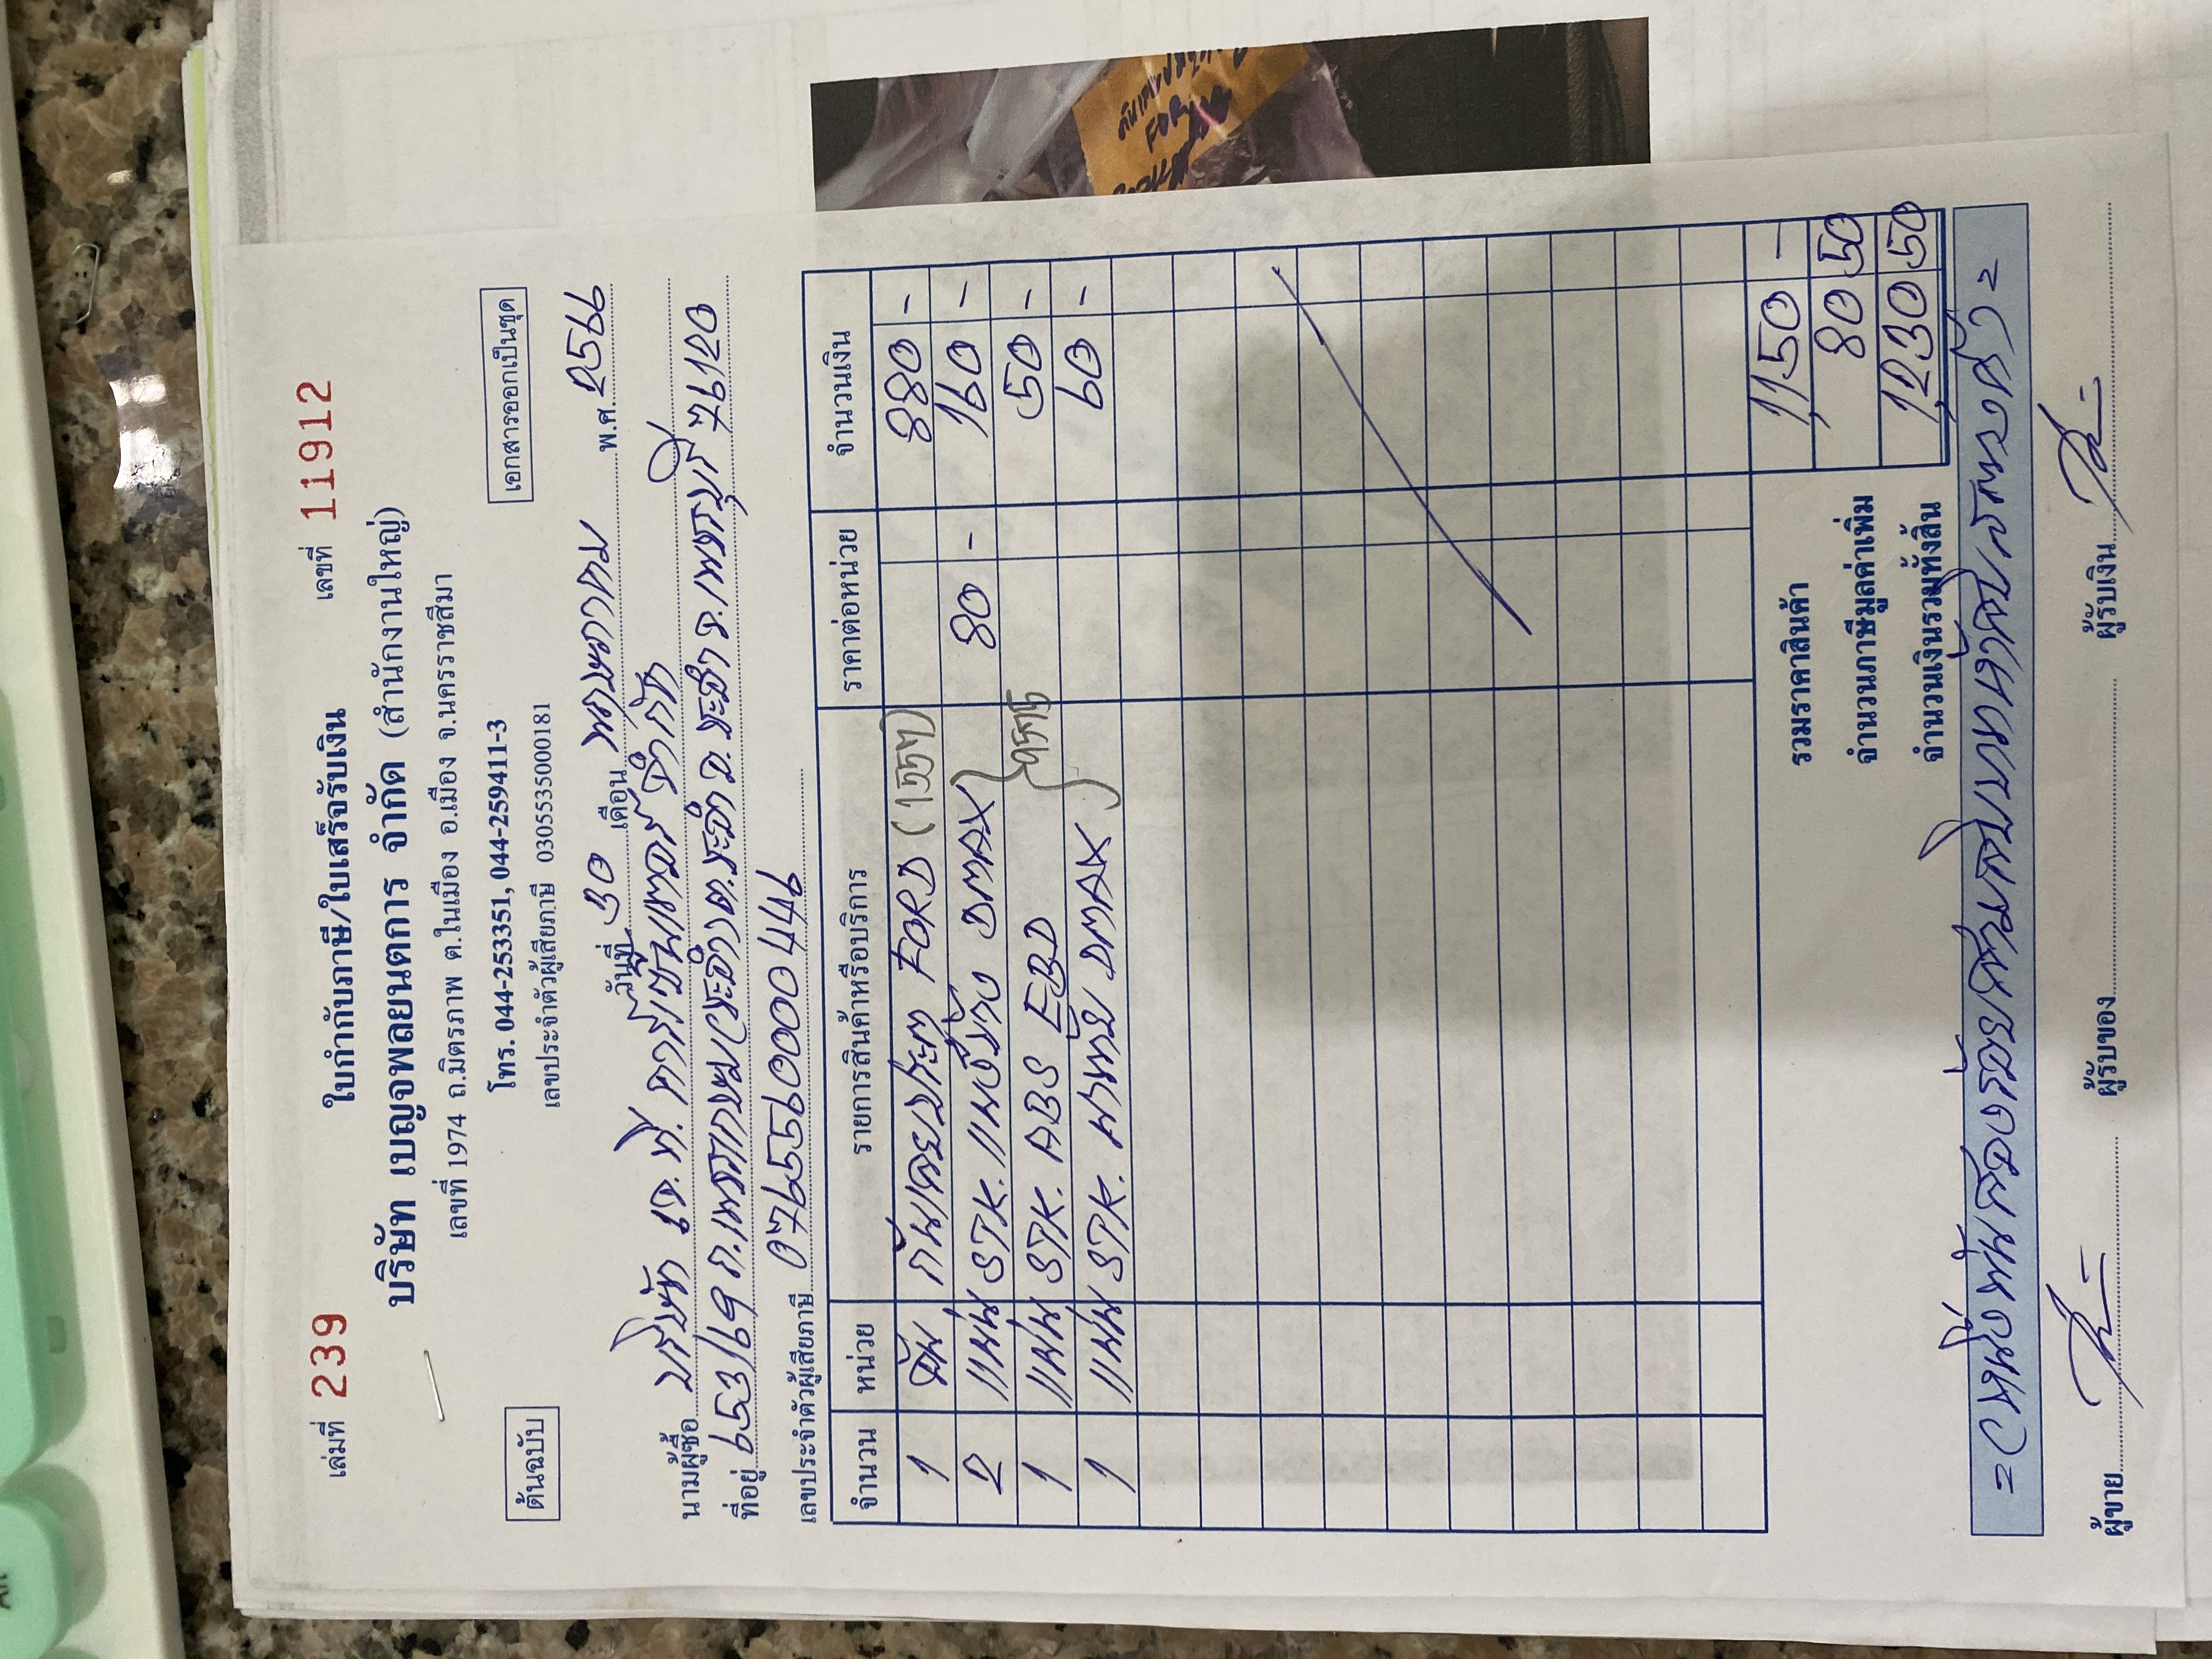 เล่มที่ 239
เลขที่ 11912
ใบกำกับภาษี/ใบเสร็จรับเงิน
บริษัท เบญจพลยนตการ จำกัด (สำนักงานใหญ่)
เลขที่ 1974 ถ.มิตรภาพ ต.ในเมือง อ.เมือง จ.นครราชสีมา
ต้นฉบับ
โทร. 044-253351, 044-259411-3
เอกสารออกเป็นชุด
เลขประจำตัวผู้เสียภาษี 0305535000181
วันที่ 30 เดือน พฤษภาคม พ.ศ. 2566
นามผู้ซื้อ บริษัท เจ.พี. คาร์เซ็นเตอร์ จำกัด
ที่อยู่ 653/69 ถ.เพชรเกษม ต.ชะอำ อ.ชะอำ จ.เพชรบุรี 76120
เลขประจำตัวผู้เสียภาษี 0765560000446
จำนวน หน่วย รายการสินค้าหรือบริการ ราคาต่อหน่วย จำนวนเงิน
1 อัน FORD (1557) 880 -
2 แผ่น STK. DMAX 80 - 160 -
1 แผ่น STK. ABS EBD 50 -
1 แผ่น STK. DMAX 60 -
รวมราคาสินค้า 1,150 -
จำนวนภาษีมูลค่าเพิ่ม 80 50
จำนวนเงินรวมทั้งสิ้น 1,230 50
= (หนึ่งพันสองร้อยสามสิบบาทห้าสิบสตางค์) =
ผู้ขาย
ผู้รับของ
ผู้รับเงิน
FORD